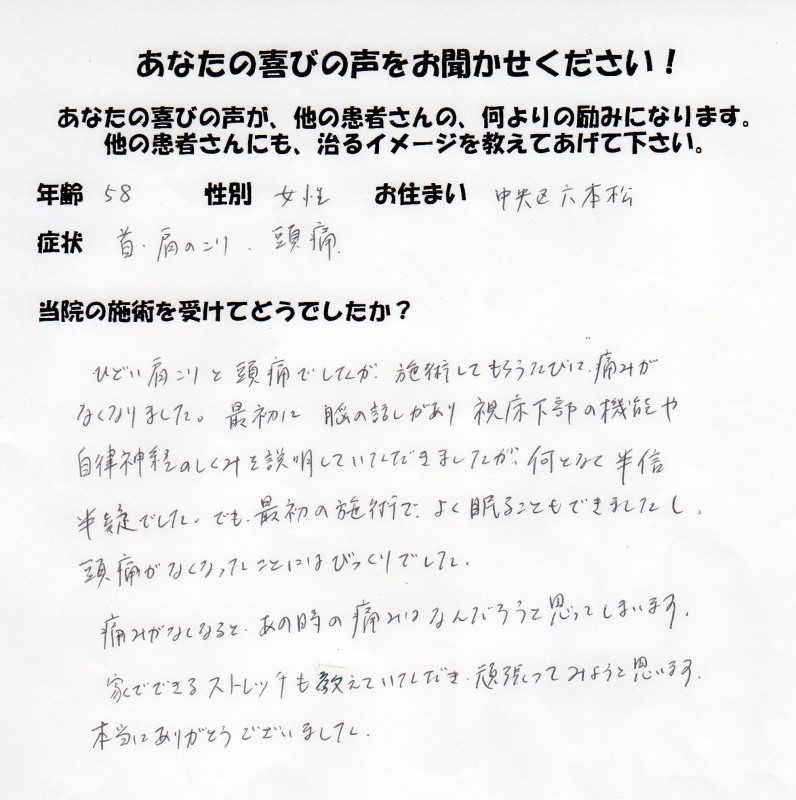 あなたの喜びの声をお聞かせください！
あなたの喜びの声が、他の患者さんの、何よりの励みになります。
他の患者さんにも、治るイメージを教えてあげて下さい。
年齢 58 性別 女性 お住まい 中央区六本松
症状 首・肩のこり、頭痛
当院の施術を受けてどうでしたか？
ひどい肩こりと頭痛でしたが、施術してもらうたびに、痛みが
なくなりました。最初に 脳の話しがあり 視床下部の機能や
自律神経のしくみを説明していただきましたが、何となく半信
半疑でした。でも、最初の施術で、よく眠ることもできましたし、
頭痛がなくなったことにはびっくりでした。
痛みがなくなると、あの時の痛みはなんだろうと思ってしまいます。
家でできるストレッチも教えていただき、頑張ってみようと思います。
本当にありがとうございました。